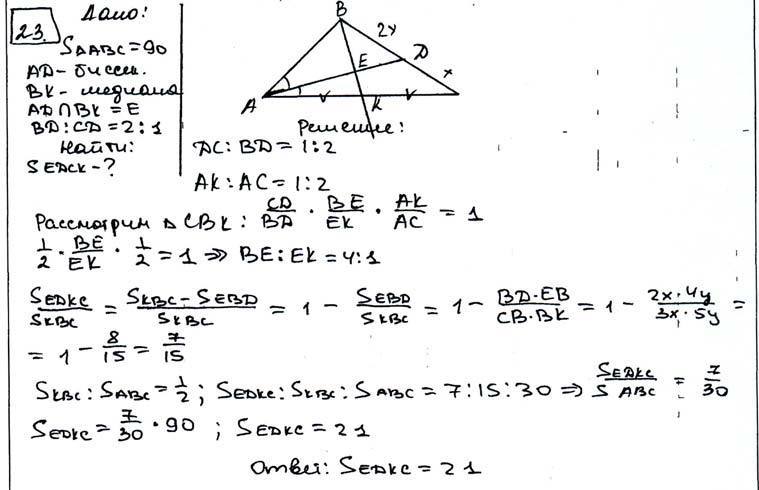 23.
Дано:
S△ABC=90
AD- биссек.
BK- медиана
AD∩BK=E
BD:CD=2:1
Найти:
SEDCK-?
B
2x
D
E
x
A
K
Решение:
DC:BD=1:2
AK:AC=1:2
Рассмотрим △CBK: CD/BD · BE/EK · AK/AC = 1
1/2 · BE/EK · 1/2 = 1 => BE:EK=4:1
SEDKC/SKBC = SKBC-SEBD/SKBC = 1 - SEBD/SKBC = 1 - BD·EB/CB·BK = 1 - 2x·4y/3x·5y =
= 1 - 8/15 = 7/15
SKBC:SABC=1/2; SEDKC:SKBC:SABC=7:15:30 => SEDKC/SABC = 7/30
SEDKC=7/30·90; SEDKC=21
Ответ: SEDKC=21